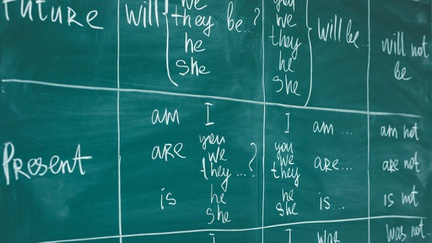 Future will we be..? we will be.. will not
they you be
he they
she he
she
am I I am... am not
are you you are... are not
we we
they...? they
is he he is... is not
she she
Present
I I was was not